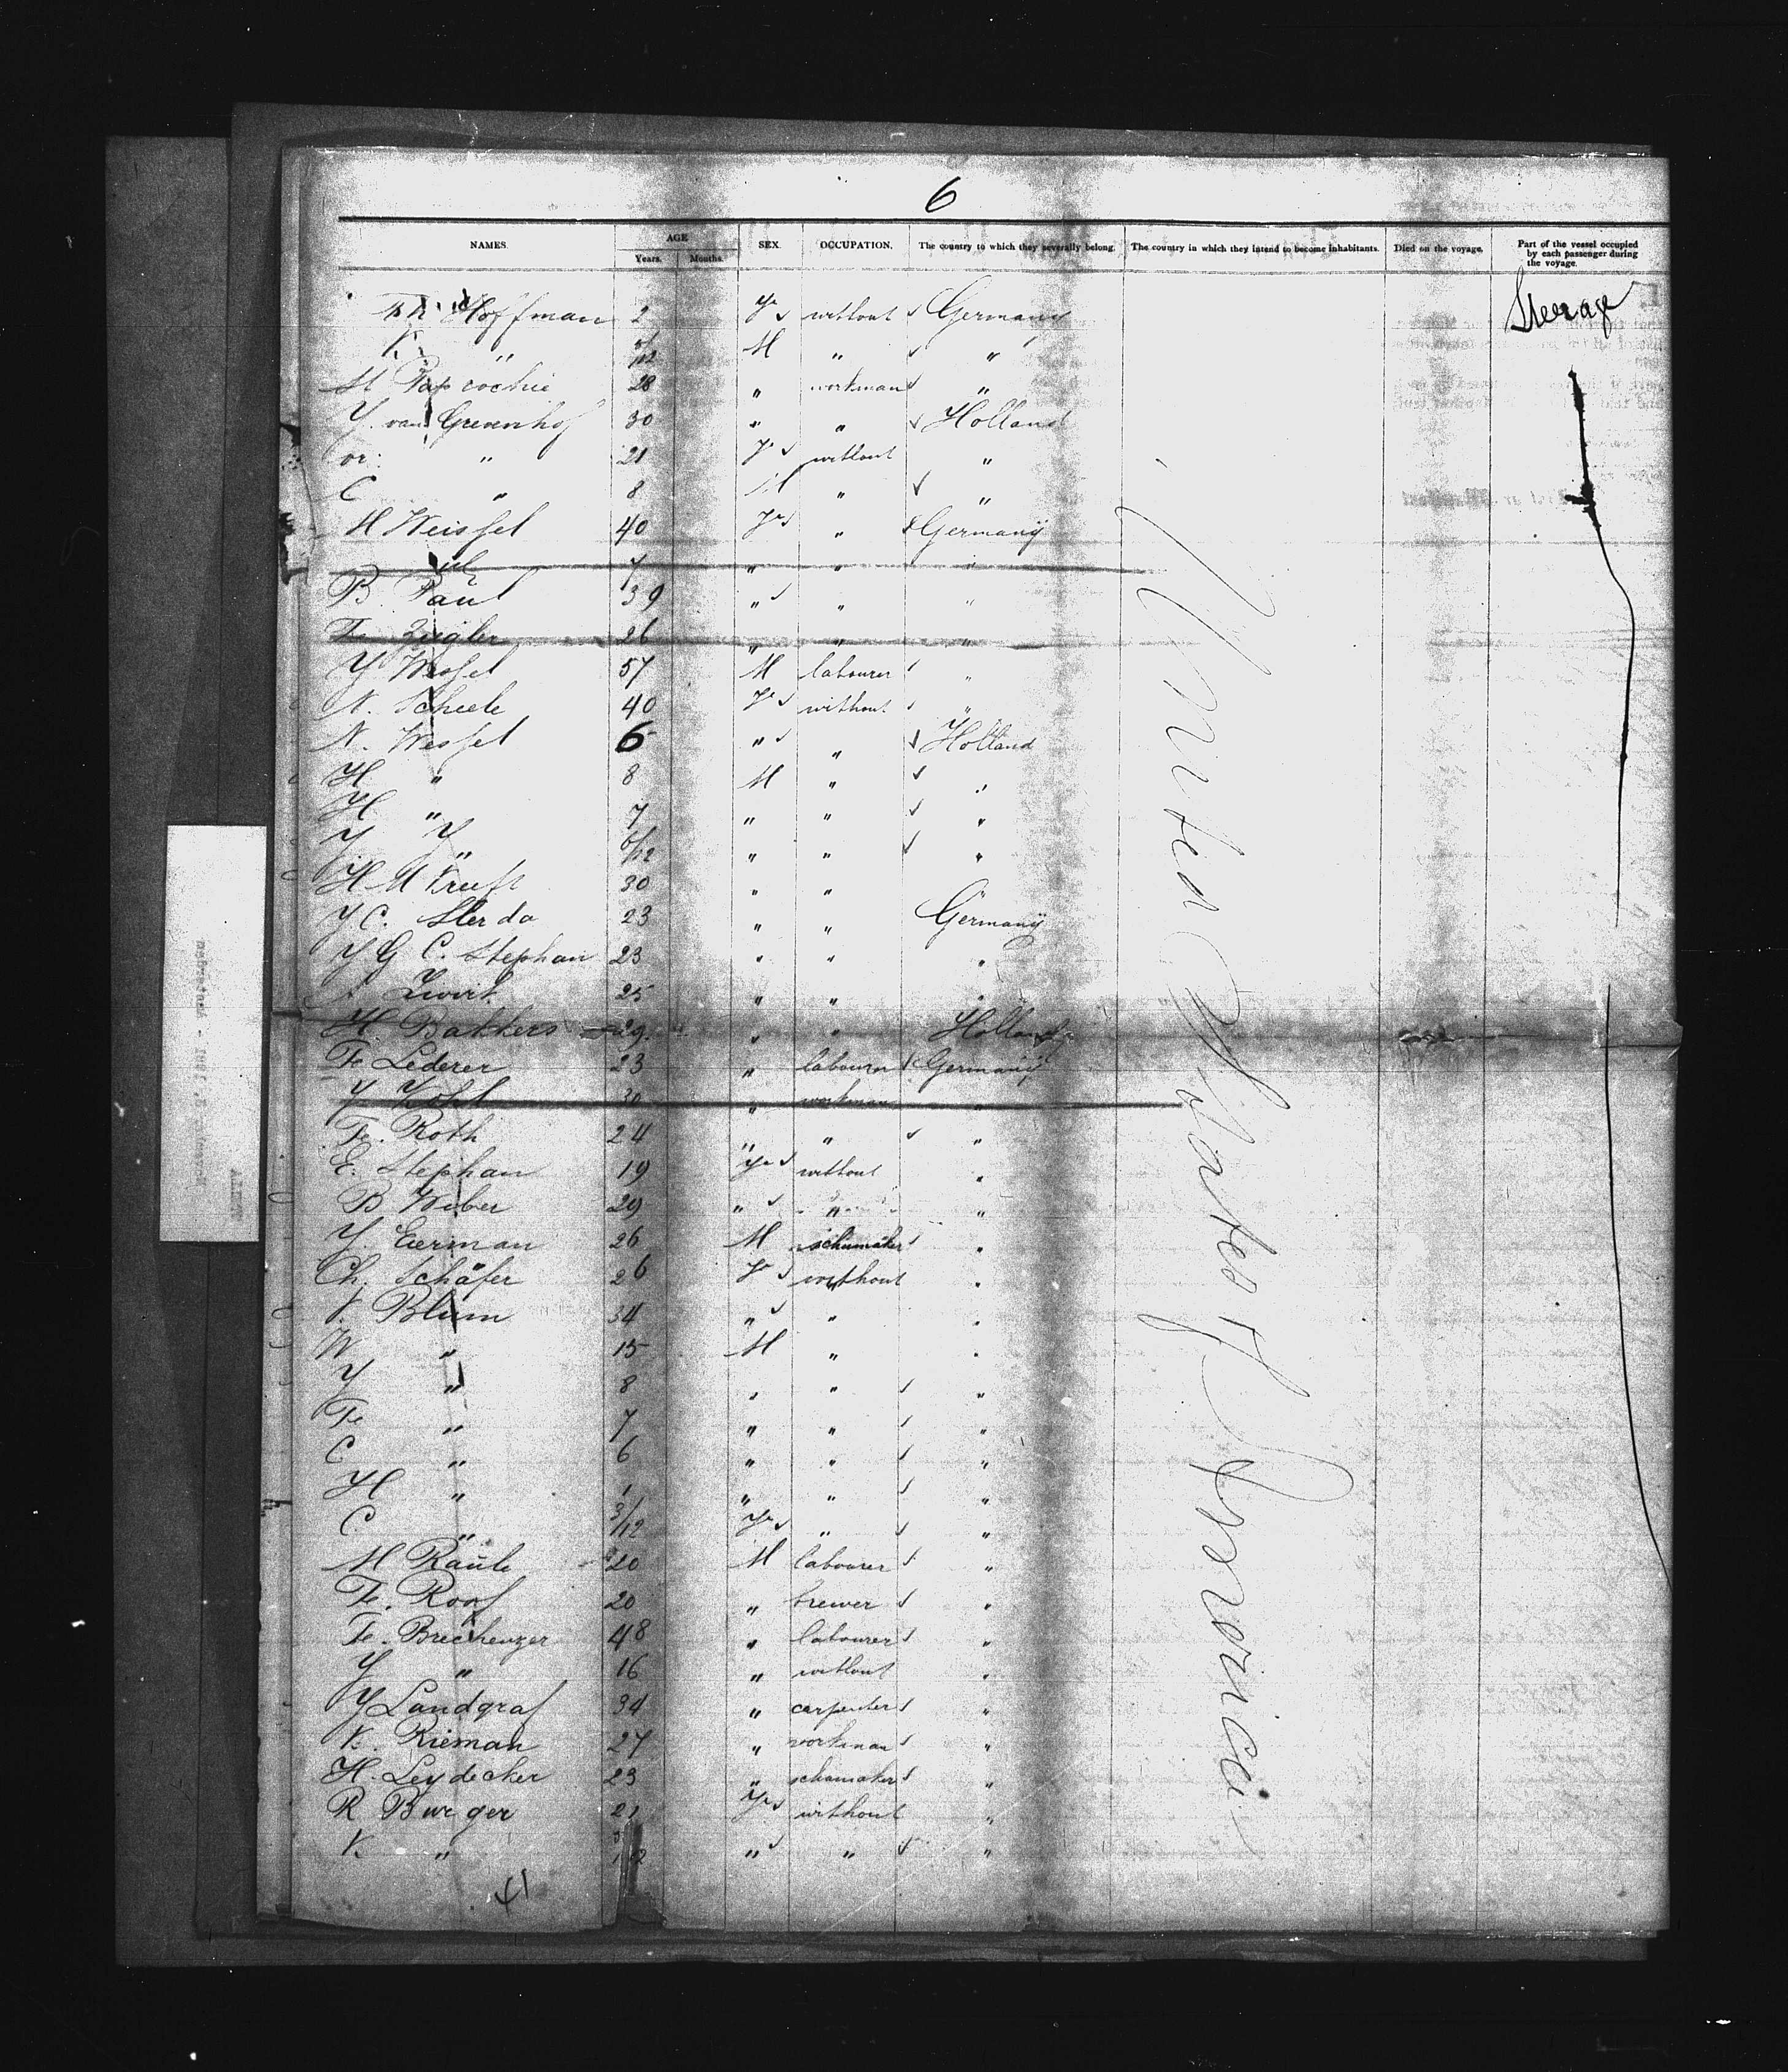 6
NAMES. AGE Years. Months. SEX. OCCUPATION. The country to which they severally belong. The country in which they intend to become inhabitants. Died on the voyage. Part of the vessel occupied by each passenger during the voyage.
Hoffman 2 Fe without Germany Steerage
K. " /12 M " "
M 28 " workman "
Y. van Greenhof 30 " " Holland
Cor: " 21 Fe without "
C " 8 M " "
H Weissel 40 Fe " Germany
" 7 " " "
B. Paul 39 " " "
Fr Zigler 26 " " "
Y Wessel 57 M labourer "
N. Scheele 40 Fe without "
N. Wessel 6 " " Holland
H " 8 M " "
H " 7 " " "
Y " 6/12 " " "
H M Kruft 30 " "
Y C. Sterda 23 " " Germany
Y G C. Stephan 23 " " "
25 " " "
H. Bakkers 29 " " Holland
Fr Lederer 23 " labourer Germany
Y Kohl 30 " workman "
Fr. Roth 24 " " "
E. Stephan 19 Fe without "
B Weber 29 " " "
Y. Eerman 26 M schumaker "
Ch. Schäfer 26 Fe without "
V. Blum 34 " " "
W " 15 M " "
Y " 8 " " "
Fr " 7 " " "
C " 6 " " "
H " 1 " " "
C. " 3/12 Fe " "
M Raule 20 M labourer "
Fr. Roof 20 " brewer "
Fr. Brechenzer 48 " labourer "
Y " 16 " without "
Y Landgraf 34 " carpenter "
K. Rieman 27 " workman "
H. Leydecker 23 " schumaker "
R Burger 21 Fe without "
K. " /12 " " "
United States of America
41